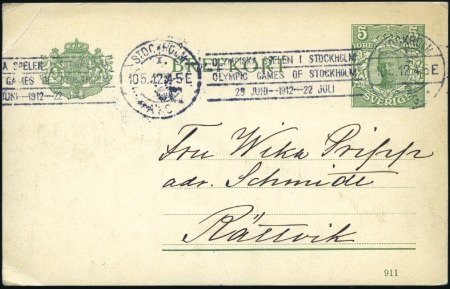 A SPELEN
GAMES OF
JUNI-1912-22
STOCKHOLM
10 5.12.4-5 E
BREFKORT
OLYMPISKA SPELEN I STOCKHOLM
OLYMPIC GAMES OF STOCKHOLM
29 JUNI-1912-22 JULI
5 ÖRE 5
SVERIGE
STOCKHOLM
12.4-5 E
Fru Wika Pripp
adr. Schmidt
Rättvik
911